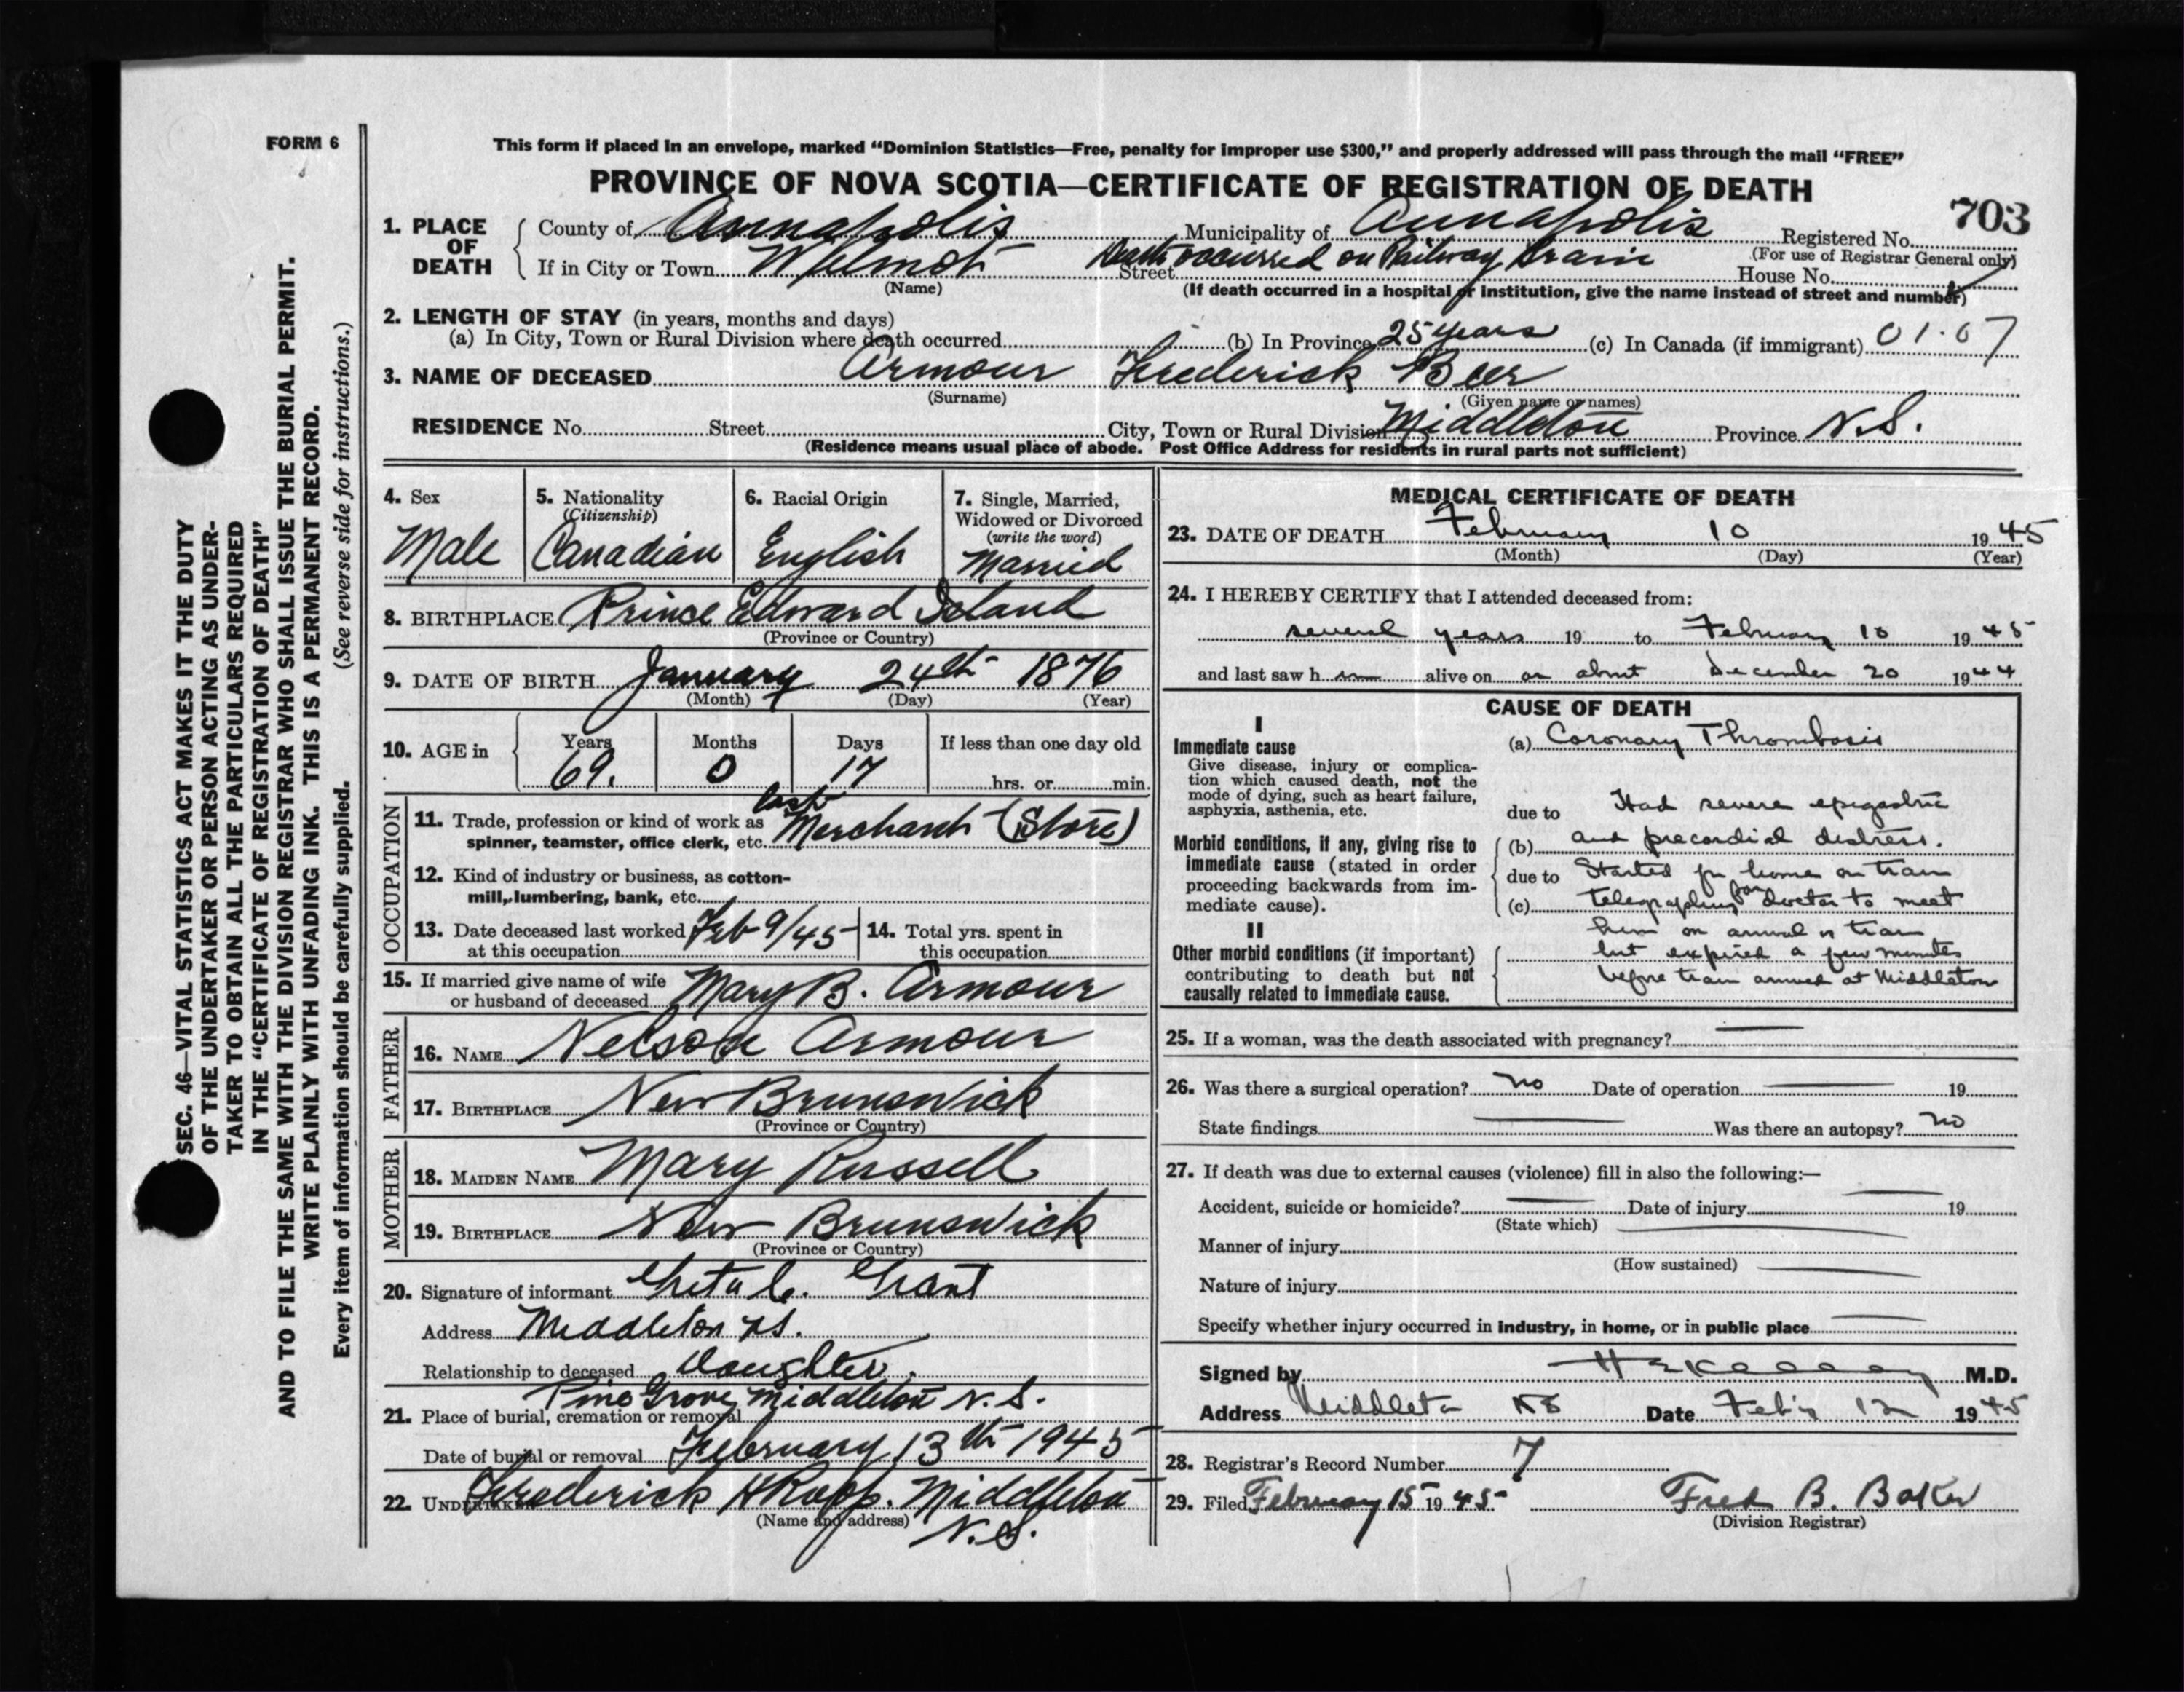 FORM 6
This form if placed in an envelope, marked “Dominion Statistics—Free, penalty for improper use $300,” and properly addressed will pass through the mail “FREE”
PROVINCE OF NOVA SCOTIA—CERTIFICATE OF REGISTRATION OF DEATH
703
1. PLACE OF DEATH
County of Annapolis Municipality of Annapolis Registered No.
(For use of Registrar General only)
If in City or Town Wilmot Street Death occurred on Railway train House No.
(Name)
(If death occurred in a hospital or institution, give the name instead of street and number)
2. LENGTH OF STAY (in years, months and days)
(a) In City, Town or Rural Division where death occurred (b) In Province 25 years (c) In Canada (if immigrant) 01.07
3. NAME OF DECEASED Armour Frederick Beer
(Surname) (Given name or names)
RESIDENCE No. Street City, Town or Rural Division Middleton Province N.S.
(Residence means usual place of abode. Post Office Address for residents in rural parts not sufficient)
4. Sex Male
5. Nationality (Citizenship) Canadian
6. Racial Origin English
7. Single, Married, Widowed or Divorced (write the word) Married
8. BIRTHPLACE Prince Edward Island
(Province or Country)
9. DATE OF BIRTH January 24th 1876
(Month) (Day) (Year)
10. AGE in Years 69. Months 0 Days 17 If less than one day old
hrs. or min.
OCCUPATION
11. Trade, profession or kind of work as
spinner, teamster, office clerk, etc. Merchant (Store)
12. Kind of industry or business, as cotton-
mill, lumbering, bank, etc.
13. Date deceased last worked at this occupation Feb 9/45
14. Total yrs. spent in this occupation
15. If married give name of wife
or husband of deceased Mary B. Armour
FATHER
16. NAME Nelson Armour
17. BIRTHPLACE New Brunswick
(Province or Country)
MOTHER
18. MAIDEN NAME Mary Russell
19. BIRTHPLACE New Brunswick
(Province or Country)
20. Signature of informant Greta C. Grant
Address Middleton N.S.
Relationship to deceased Daughter.
21. Place of burial, cremation or removal Pine Grove, Middleton N.S.
Date of burial or removal February 13th 1945
22. UNDERTAKER Frederick H Middleton
(Name and address) N.S.
MEDICAL CERTIFICATE OF DEATH
23. DATE OF DEATH February 10 1945
(Month) (Day) (Year)
24. I HEREBY CERTIFY that I attended deceased from:
several years 19 to February 10 1945
and last saw h im alive on or about December 20 1944
CAUSE OF DEATH
I
Immediate cause
Give disease, injury or complica-
tion which caused death, not the
mode of dying, such as heart failure,
asphyxia, asthenia, etc.
Morbid conditions, if any, giving rise to
immediate cause (stated in order
proceeding backwards from im-
mediate cause).
II
Other morbid conditions (if important)
contributing to death but not
causally related to immediate cause.
(a) Coronary Thrombosis
due to Had severe epigastric
(b) and precordial distress.
due to Started for home on train
(c) telegraphing for doctor to meet
him on arrival of train
but expired a few minutes
before train arrived at Middleton
25. If a woman, was the death associated with pregnancy?
26. Was there a surgical operation? no Date of operation 19
State findings Was there an autopsy? no
27. If death was due to external causes (violence) fill in also the following:—
Accident, suicide or homicide? Date of injury 19
(State which)
Manner of injury
(How sustained)
Nature of injury
Specify whether injury occurred in industry, in home, or in public place
Signed by M.D.
Address Middleton NS Date Feb'y 12 1945
28. Registrar's Record Number 7
29. Filed February 15 1945 Fred B. Baker
(Division Registrar)
SEC. 46—VITAL STATISTICS ACT MAKES IT THE DUTY
OF THE UNDERTAKER OR PERSON ACTING AS UNDER-
TAKER TO OBTAIN ALL THE PARTICULARS REQUIRED
IN THE “CERTIFICATE OF REGISTRATION OF DEATH”
AND TO FILE THE SAME WITH THE DIVISION REGISTRAR WHO SHALL ISSUE THE BURIAL PERMIT.
WRITE PLAINLY WITH UNFADING INK. THIS IS A PERMANENT RECORD.
Every item of information should be carefully supplied. (See reverse side for instructions.)